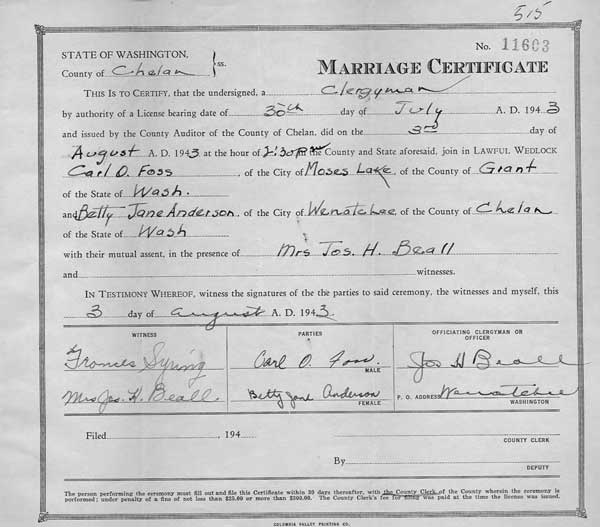 515
No. 11603
STATE OF WASHINGTON,
County of Chelan } ss.
MARRIAGE CERTIFICATE
THIS IS TO CERTIFY, that the undersigned, a Clergyman
by authority of a License bearing date of 30th day of July A. D. 1943
and issued by the County Auditor of the County of Chelan, did on the 3rd day of
August A. D. 1943 at the hour of 2:30 P.M. in the County and State aforesaid, join in LAWFUL WEDLOCK
Carl O. Foss, of the City of Moses Lake, of the County of Grant
of the State of Wash.
and Betty Jane Anderson, of the City of Wenatchee, of the County of Chelan
of the State of Wash
with their mutual assent, in the presence of Mrs Jos. H. Beall
and witnesses.
IN TESTIMONY WHEREOF, witness the signatures of the the parties to said ceremony, the witnesses and myself, this
3 day of August A. D. 1943.
WITNESS PARTIES OFFICIATING CLERGYMAN OR OFFICER
Frances Syring Carl O. Foss. Jos H Beall
MALE
Mrs Jos. H. Beall. Betty Jane Anderson P. O. ADDRESS Wenatchee
FEMALE WASHINGTON
Filed , 194
COUNTY CLERK
By
DEPUTY
The person performing the ceremony must fill out and file this Certificate within 30 days thereafter, with the County Clerk of the County wherein the ceremony is
performed; under penalty of a fine of not less than $25.00 or more than $300.00. The County Clerk's fee for filing was paid at the time the license was issued.
COLUMBIA VALLEY PRINTING CO.